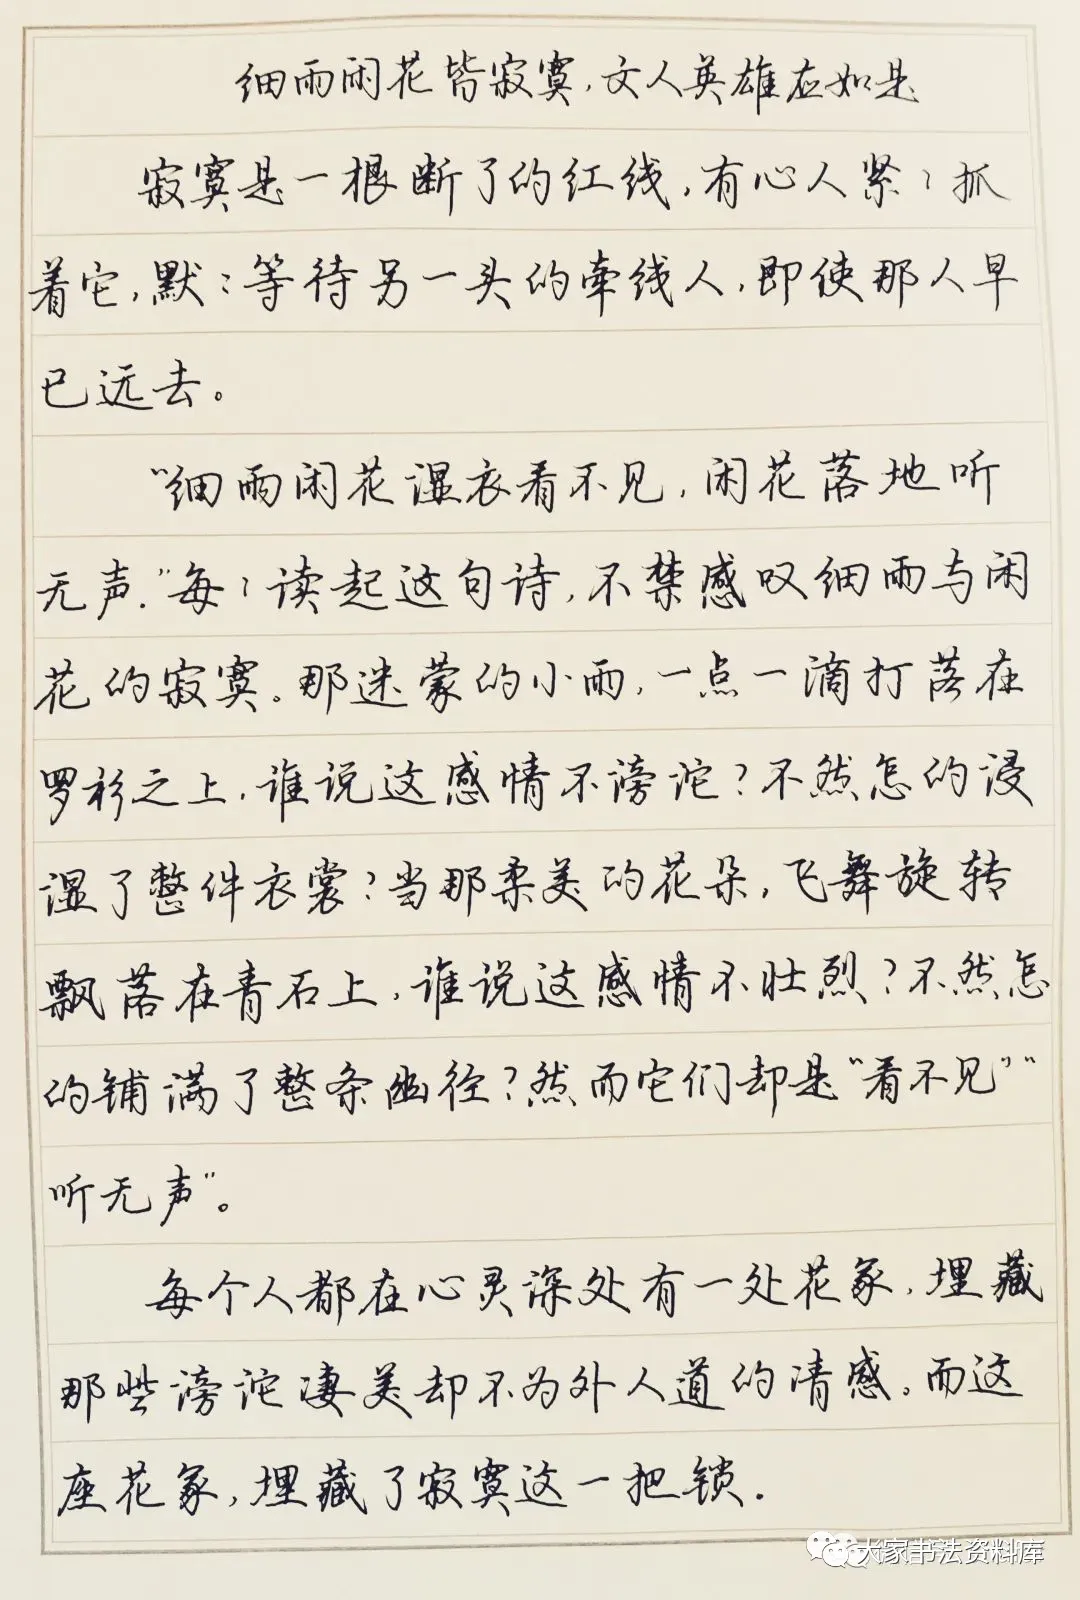 细雨闲花皆寂寞,文人英雄应如是
寂寞是一根断了的红线,有心人紧〻抓
着它,默〻等待另一头的牵线人,即使那人早
已远去。
“细雨闲花湿衣看不见,闲花落地听
无声.”每〻读起这句诗,不禁感叹细雨与闲
花的寂寞。那迷蒙的小雨,一点一滴打落在
罗衫之上,谁说这感情不滂沱?不然怎的浸
湿了整件衣裳?当那柔美的花朵,飞舞旋转
飘落在青石上,谁说这感情不壮烈?不然怎
的铺满了整条幽径?然而它们却是“看不见”“
听无声”。
每个人都在心灵深处有一处花冢,埋藏
那些滂沱凄美却不为外人道的情感,而这
座花冢,埋藏了寂寞这一把锁.
大家书法资料库